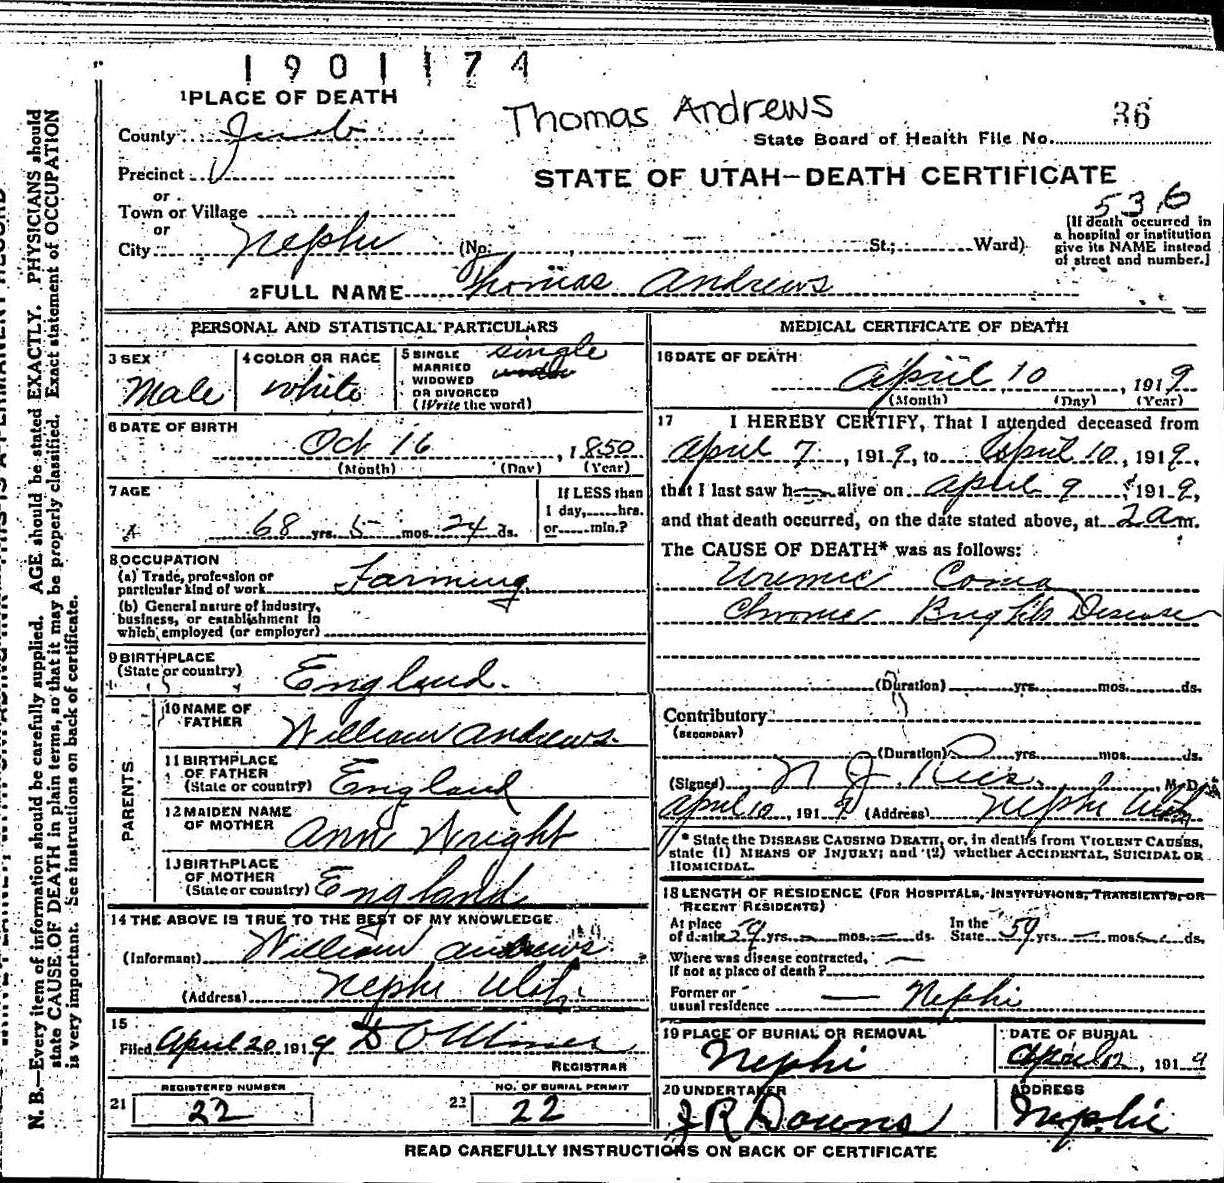 1901174
1 PLACE OF DEATH
Thomas Andrews
36
County Juab
State Board of Health File No.
Precinct
STATE OF UTAH—DEATH CERTIFICATE
or
Town or Village
536
or
City Nephi (No. St.; Ward)
[If death occurred in
a hospital or institution
give its NAME instead
of street and number.]
2 FULL NAME Thomas Andrews
PERSONAL AND STATISTICAL PARTICULARS
3 SEX
Male
4 COLOR OR RACE
white
5 SINGLE
MARRIED
WIDOWED
OR DIVORCED
(Write the word)
single
6 DATE OF BIRTH
Oct 16, 1850
(Month) (Day) (Year)
7 AGE
68 yrs. 5 mos. 24 ds.
If LESS than
1 day, hrs.
or min.?
8 OCCUPATION
(a) Trade, profession or
particular kind of work Farming
(b) General nature of industry,
business, or establishment in
which employed (or employer)
9 BIRTHPLACE
(State or country) England.
PARENTS
10 NAME OF
FATHER William Andrews.
11 BIRTHPLACE
OF FATHER
(State or country) England
12 MAIDEN NAME
OF MOTHER Ann Wright
13 BIRTHPLACE
OF MOTHER
(State or country) England
14 THE ABOVE IS TRUE TO THE BEST OF MY KNOWLEDGE
(Informant) William Andrews
(Address) Nephi Utah
15
Filed April 20 1919
REGISTRAR
REGISTERED NUMBER
21 22
NO. OF BURIAL PERMIT
22 22
MEDICAL CERTIFICATE OF DEATH
16 DATE OF DEATH
April 10, 1919
(Month) (Day) (Year)
17 I HEREBY CERTIFY, That I attended deceased from
April 7, 1919, to April 10, 1919,
that I last saw h alive on April 9, 1919,
and that death occurred, on the date stated above, at 2 a m.
The CAUSE OF DEATH* was as follows:
Uremic Coma
Chronic Brights Disease
(Duration) yrs. mos. ds.
Contributory
(SECONDARY)
(Duration) yrs. mos. ds.
(Signed) N J Rees, M. D.
April 10, 1919 (Address) Nephi Utah
* State the DISEASE CAUSING DEATH, or, in deaths from VIOLENT CAUSES,
state (1) MEANS OF INJURY; and (2) whether ACCIDENTAL, SUICIDAL OR
HOMICIDAL.
18 LENGTH OF RESIDENCE (FOR HOSPITALS, INSTITUTIONS, TRANSIENTS, OR
RECENT RESIDENTS)
At place
of death 59 yrs. – mos. – ds.
In the
State 59 yrs. – mos. – ds.
Where was disease contracted,
if not at place of death? —
Former or
usual residence — Nephi
19 PLACE OF BURIAL OR REMOVAL
Nephi
DATE OF BURIAL
April 12, 1919
20 UNDERTAKER
J R Downs
ADDRESS
Nephi
READ CAREFULLY INSTRUCTIONS ON BACK OF CERTIFICATE
N. B.—Every item of information should be carefully supplied. AGE should be stated EXACTLY. PHYSICIANS should
state CAUSE OF DEATH in plain terms, so that it may be properly classified. Exact statement of OCCUPATION
is very important. See instructions on back of certificate.